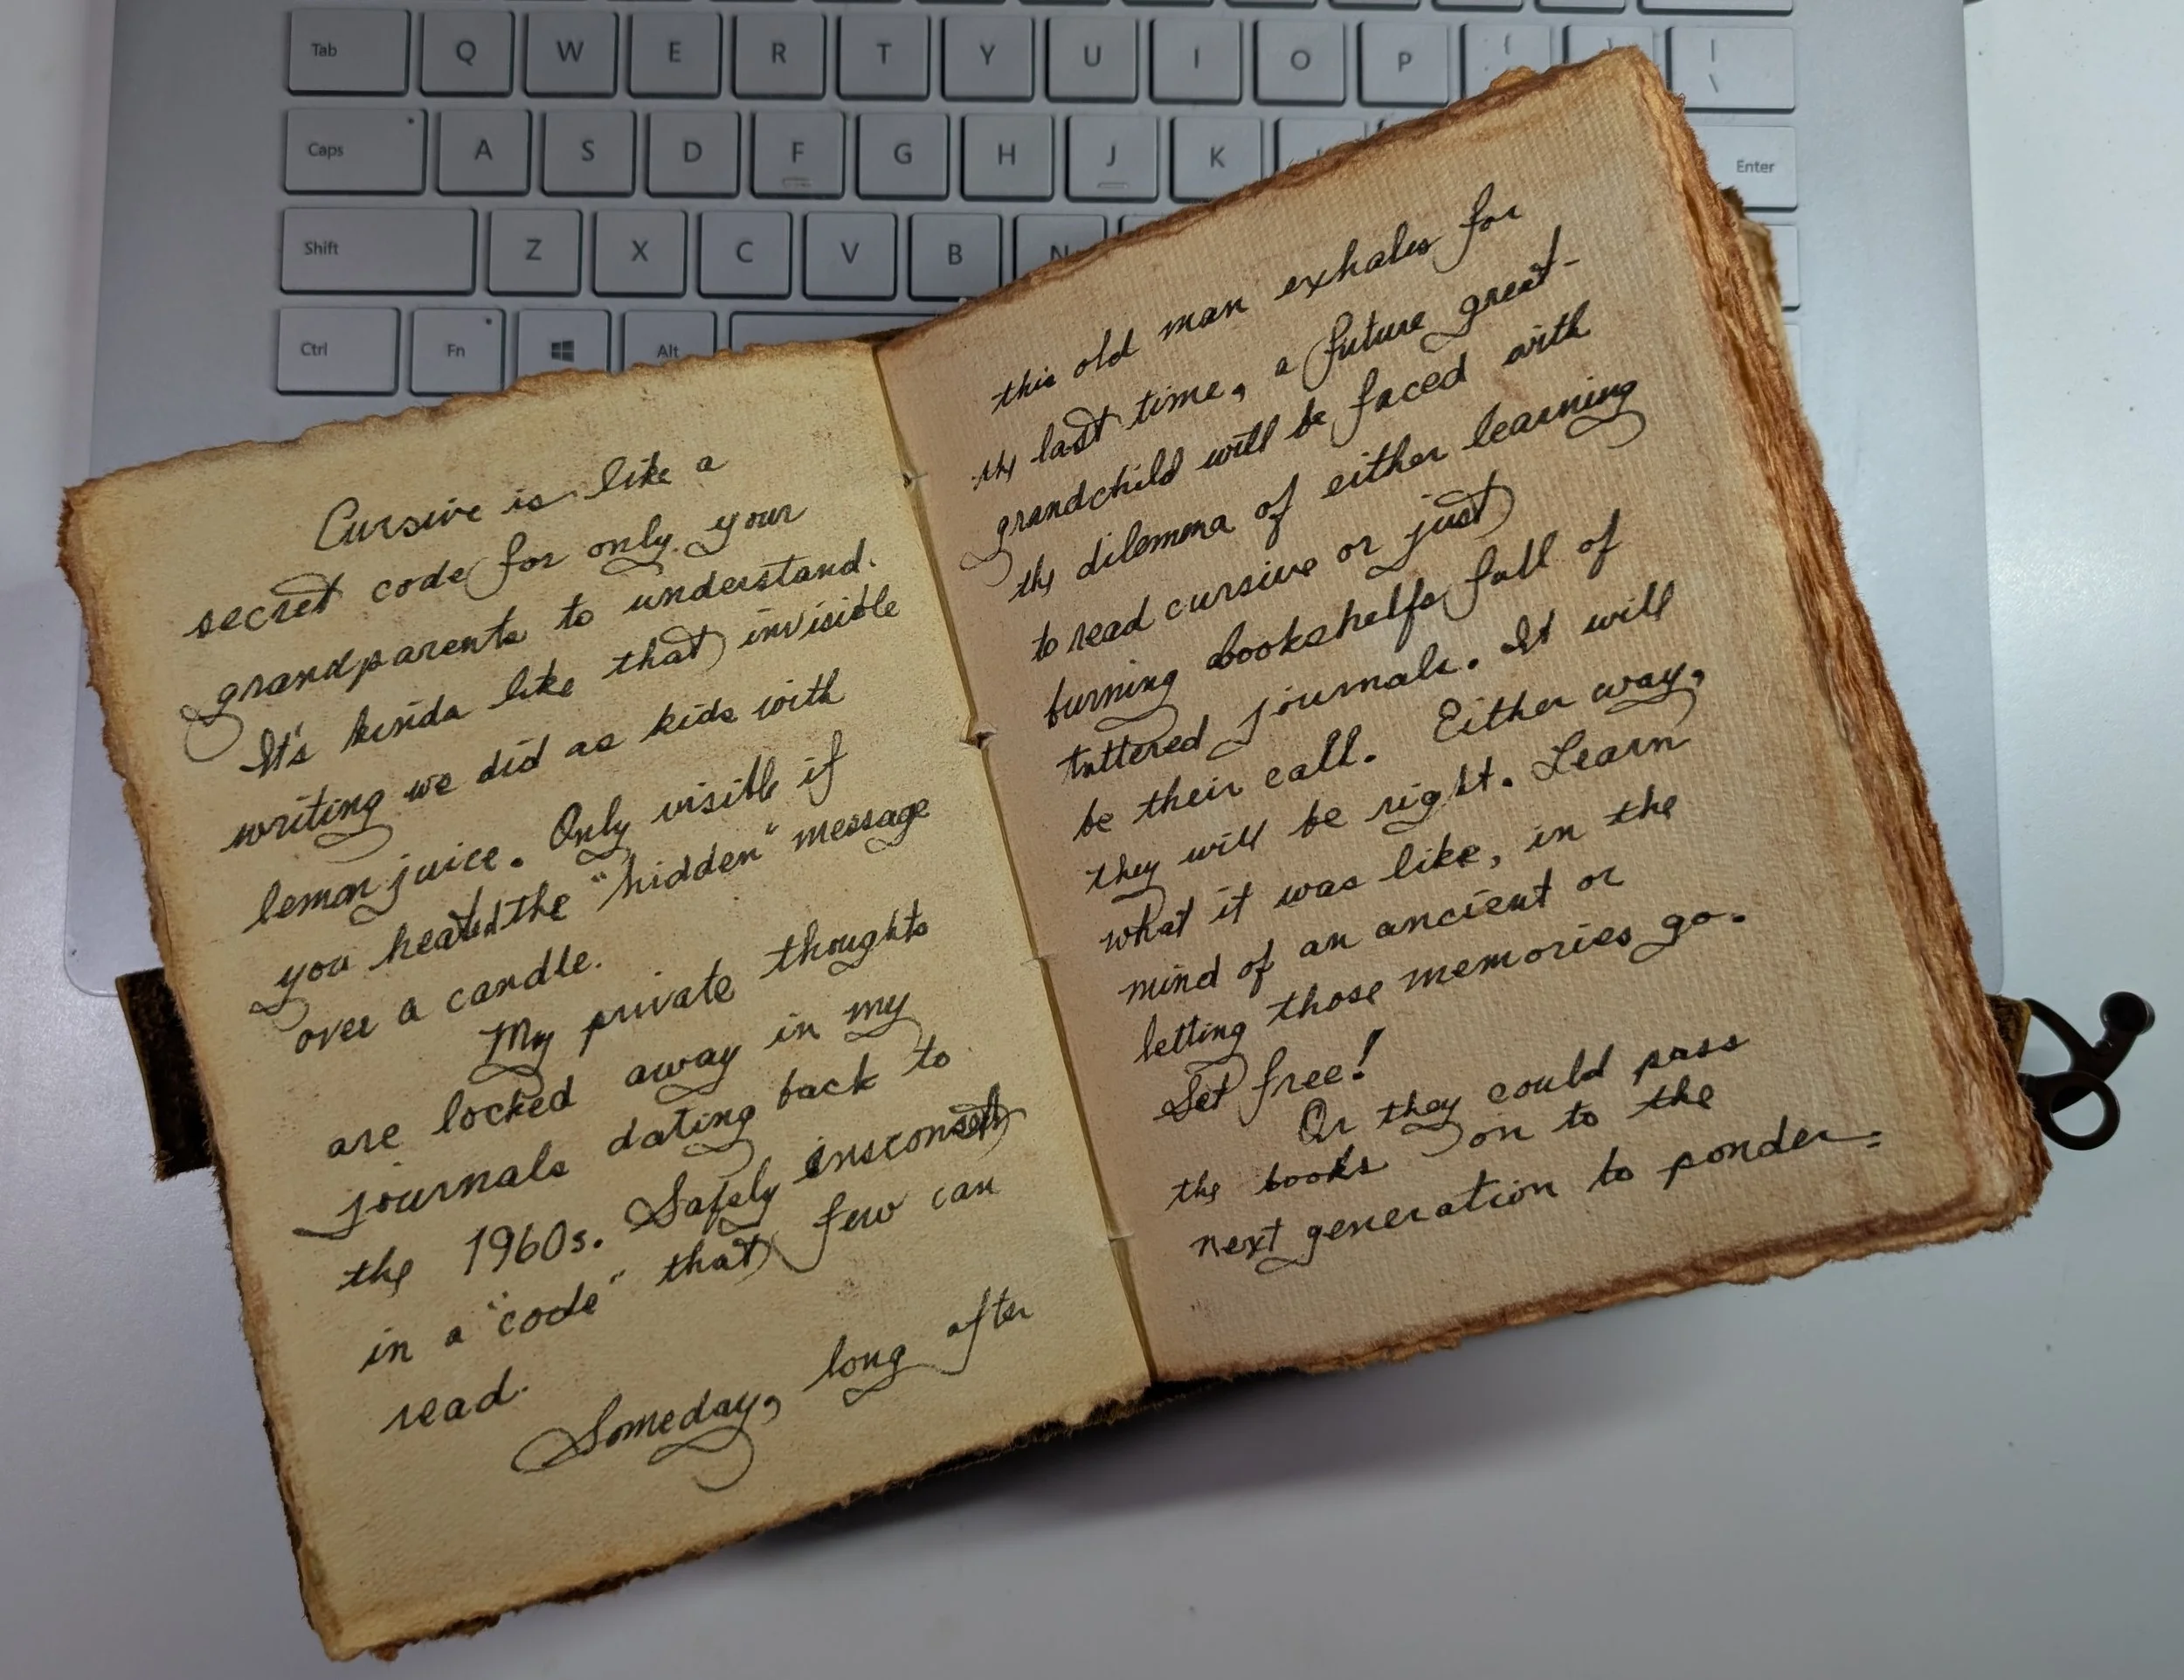 Tab Q W E R T Y U I O P { } | \
Caps A S D F G H J K Enter
Shift Z X C V B N
Ctrl Fn Alt
Cursive is like a
secret code for only your
grandparents to understand.
It's kinda like that invisible
writing we did as kids with
lemon juice. Only visible if
you heated the "hidden" message
over a candle.
My private thoughts
are locked away in my
journals dating back to
the 1960s. Safely
in a "code" that few can
read.
Someday, long after
this old man exhales for
the last time, a future great-
grandchild will be faced with
the dilemma of either learning
to read cursive or just
burning bookshelfs full of
tattered journals. It will
be their call. Either way,
they will be right. Learn
what it was like, in the
mind of an ancient or
letting those memories go.
Set free!
Or they could pass
the books on to the
next generation to ponder